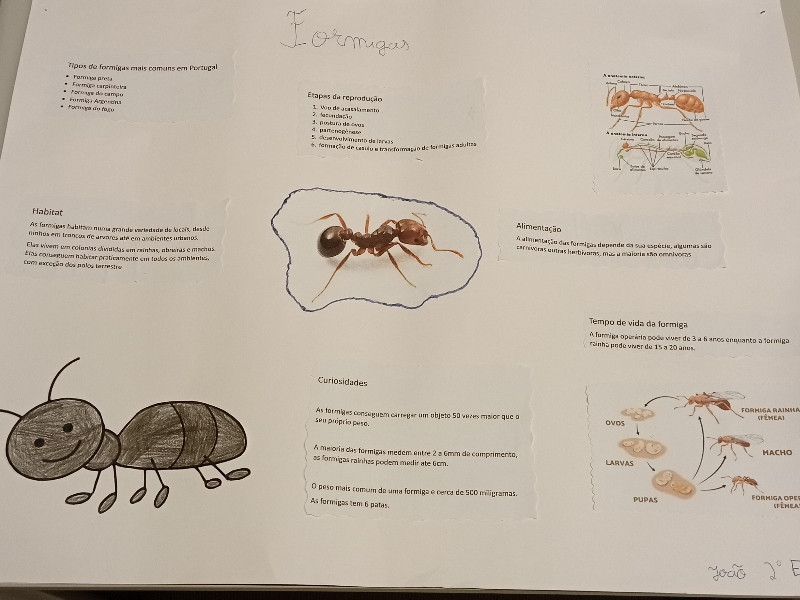 Formigas
Tipos de formigas mais comuns em Portugal
• Formiga preta
• Formiga carpinteira
• Formiga do campo
• Formiga Argentina
• Formiga do fogo
Etapas da reprodução
1. Voo de acasalamento
2. fecundação
3. postura de ovos
4. partenogénese
5. desenvolvimento de larvas
6. formação de casulo e transformação de formigas adultas
A anatomia externa
A anatomia interna
Habitat
As formigas habitam numa grande variedade de locais, desde
ninhos em troncos de arvores até em ambientes urbanos.
Elas vivem em colonias divididas em rainhas, obreiras e machos.
Elas conseguem habitar praticamente em todos os ambientes,
com exceção dos polos terrestre
Alimentação
A alimentação das formigas depende da sua espécie, algumas são
carnívoras outras herbívoras, mas a maioria são omnívoras
Tempo de vida da formiga
A formiga operária pode viver de 3 a 6 anos enquanto a formiga
rainha pode viver de 15 a 20 anos.
Curiosidades
As formigas conseguem carregar um objeto 50 vezes maior que o
seu próprio peso.
A maioria das formigas medem entre 2 a 6mm de comprimento,
as formigas rainhas podem medir ate 6cm.
O peso mais comum de uma formiga e cerca de 500 miligramas.
As formigas tem 6 patas.
FORMIGA RAINHA
(FÊMEA)
OVOS
MACHO
LARVAS
PUPAS
FORMIGA OPER
(FÊMEA)
João 2º E